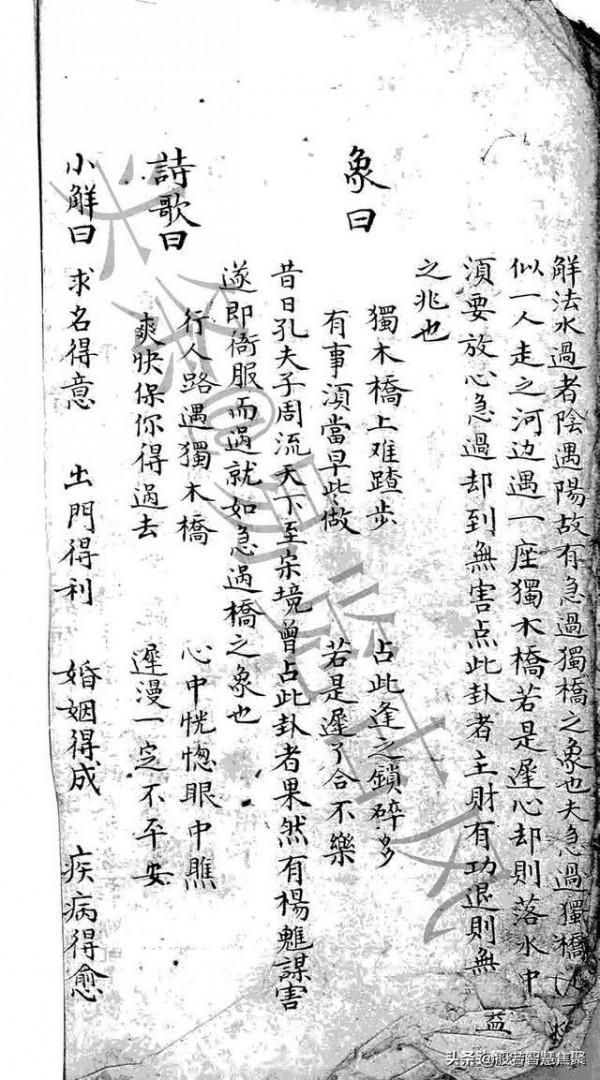 解法水過者陰遇陽故有急過獨橋之象也夫急過獨橋
似一人走之河边遇一座獨木橋若是遲心却則落水中
湏要放心急過却到無害点此卦者主財有功退則無益
之兆也
象曰
獨木橋上难蹅步 占此逢之鎖碎多
有事湏當早些做 若是遲了合不樂
昔日孔夫子周流天下至宋境曾占此卦者果然有楊魋謀害
遂即衙服而過就如急過橋之象也
詩歌曰
行人路遇獨木橋 心中恍惚眼中瞧
爽快保你得過去 遲漫一定不平安
小觧曰 求名得意 出門得利 婚姻得成 疾病得愈
头条@
头条@般若智慧焦聚